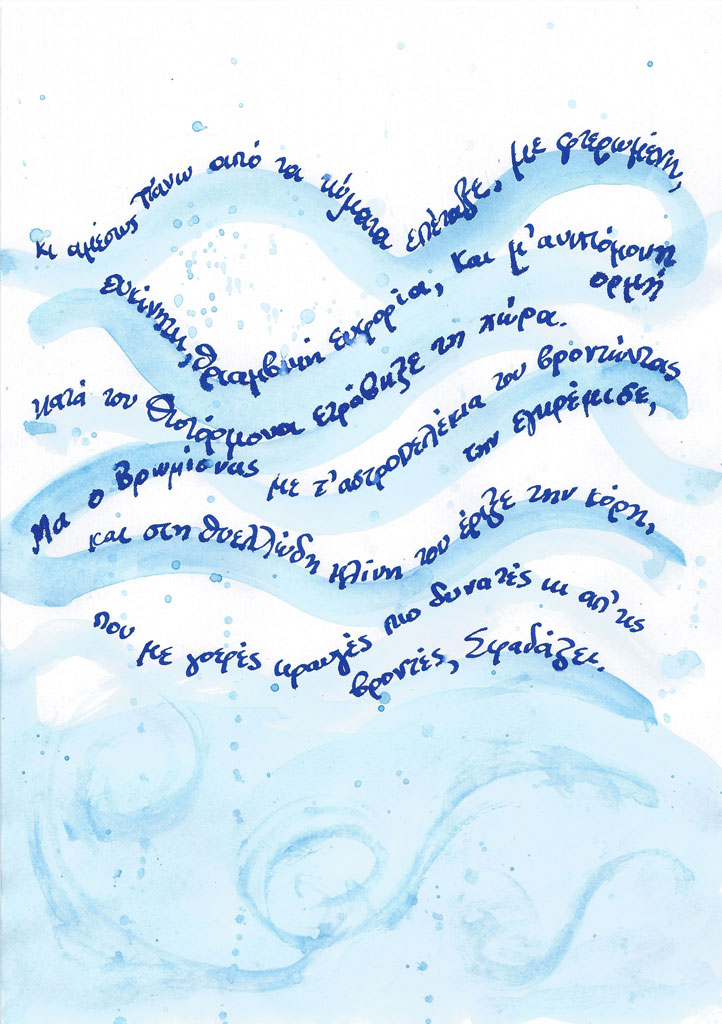 κι αμέσως πάνω από τα κύματα επέταξε, με φτερωμένη,
ευκίνητη, θριαμβική ευφορία, και μ' ανυπόμονη
ορμή
κατά του Φιστόρμονα ετράβηξε τη χώρα.
Μα ο Βρωμίονας με τ' αστροπελέκια του βροντώντας
την εγκρέμισε,
και στη θυελλώδη κλίνη του έριξε την κόρη,
που με γοερές κραυγές πιο δυνατές κι απ' τις
βροντές, Σφαδάζει.